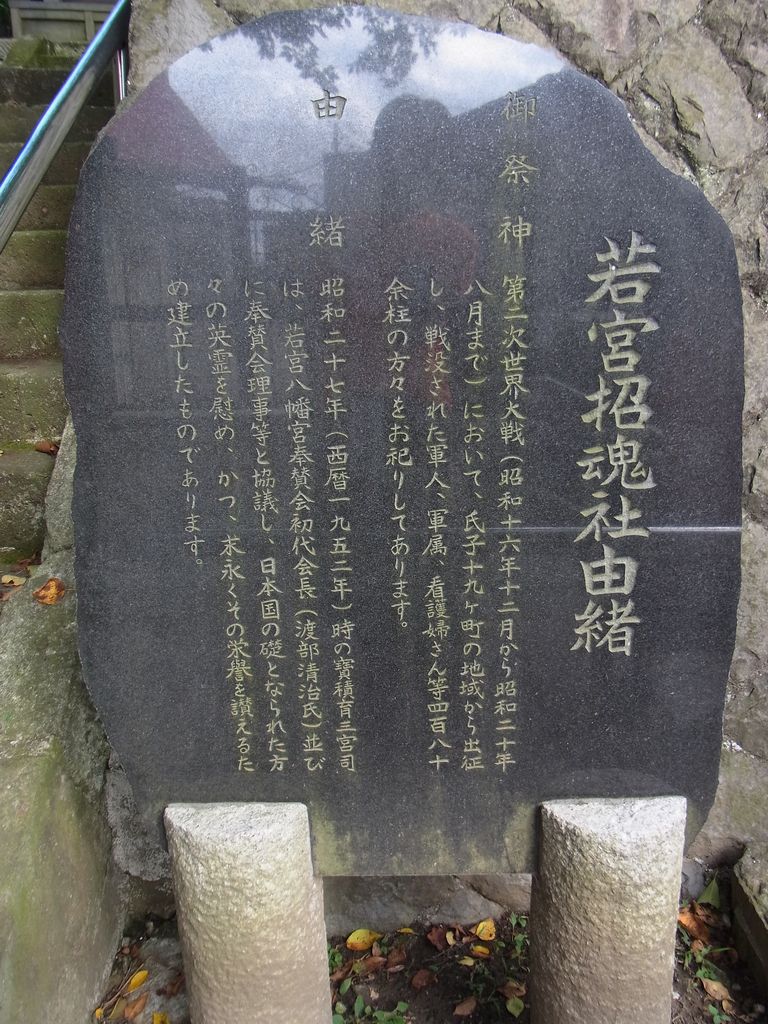 若宮招魂社由緒
御祭神 第二次世界大戦（昭和十六年十二月から昭和二十年
八月まで）において、氏子十九ヶ町の地域から出征
し、戦没された軍人、軍属、看護婦さん等四百八十
余柱の方々をお祀りしてあります。
由緒 昭和二十七年（西暦一九五二年）時の寶積育三宮司
は、若宮八幡宮奉賛会初代会長（渡部清治氏）並び
に奉賛会理事等と協議し、日本国の礎となられた方
々の英霊を慰め、かつ、末永くその栄譽を讃えるた
め建立したものであります。